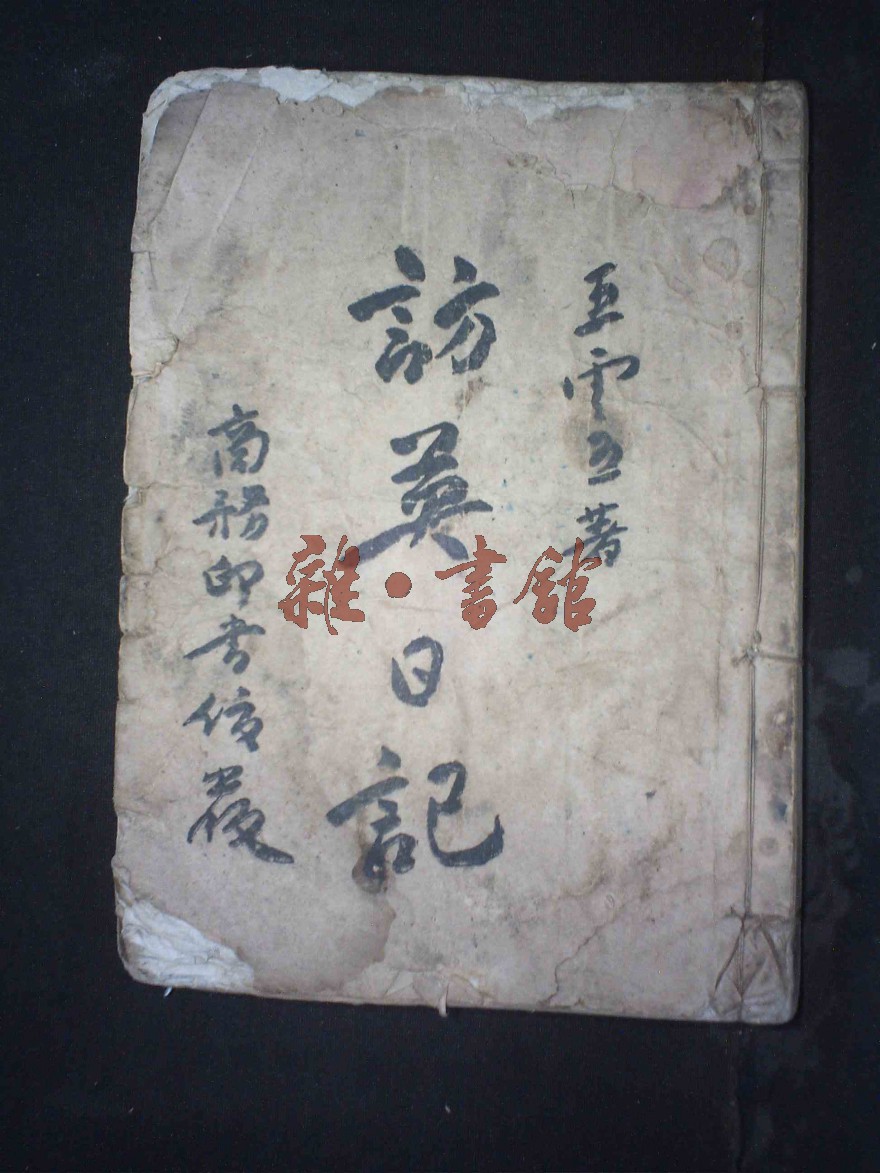 王雲五著
訪英日記
商務印書
雜·書館